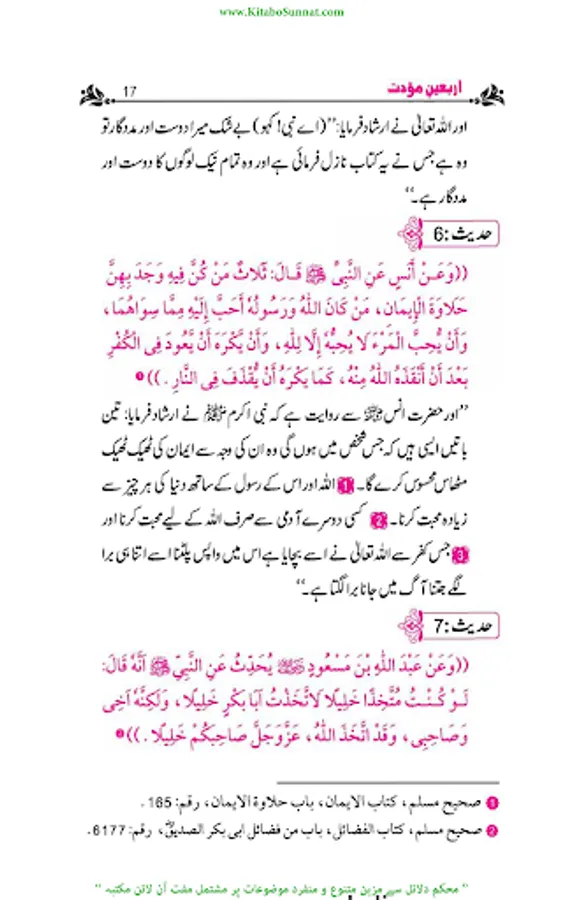 www.KitaboSunnat.com
اربعین مؤدت 17
اور اللہ تعالیٰ نے ارشاد فرمایا: ’’(اے نبی! کہو) بے شک میرا دوست اور مددگار تو
وہ ہے جس نے یہ کتاب نازل فرمائی ہے اور وہ تمام نیک لوگوں کا دوست اور
مددگار ہے۔‘‘
حدیث: 6
((وَعَنْ أَنَسٍ عَنِ النَّبِیِّ ﷺ قَالَ: ثَلَاثٌ مَنْ کُنَّ فِیهِ وَجَدَ بِهِنَّ
حَلَاوَةَ الْإِیمَانِ، مَنْ کَانَ اللّٰهُ وَرَسُولُهُ أَحَبَّ إِلَیْهِ مِمَّا سِوَاهُمَا،
وَأَنْ یُّحِبَّ الْمَرْءَ لَا یُحِبُّهُ إِلَّا لِلّٰهِ، وَأَنْ یَّکْرَهَ أَنْ یَّعُودَ فِی الْکُفْرِ
بَعْدَ أَنْ أَنْقَذَهُ اللّٰهُ مِنْهُ، کَمَا یَکْرَهُ أَنْ یُّقْذَفَ فِی النَّارِ.)) ❶
’’اور حضرت انس ﷜ سے روایت ہے کہ نبی اکرم ﷺ نے ارشاد فرمایا: تین
باتیں ایسی ہیں کہ جس شخص میں ہوں گی وہ ان کی وجہ سے ایمان کی ٹھیک ٹھیک
مٹھاس محسوس کرے گا۔ 1 اللہ اور اس کے رسول کے ساتھ دنیا کی ہر چیز سے
زیادہ محبت کرنا۔ 2 کسی دوسرے آدمی سے صرف اللہ کے لیے محبت کرنا اور
3 جس کفر سے اللہ تعالیٰ نے اسے بچایا ہے اس میں واپس پلٹنا اسے اتنا ہی برا
لگے جتنا آگ میں جانا برا لگتا ہے۔‘‘
حدیث: 7
((وَعَنْ عَبْدِ اللّٰهِ بْنِ مَسْعُودٍ ﷜ یُحَدِّثُ عَنِ النَّبِیِّ ﷺ أَنَّهُ قَالَ:
لَوْ کُنْتُ مُتَّخِذًا خَلِیلًا لَاتَّخَذْتُ أَبَا بَکْرٍ خَلِیلًا، وَلٰکِنَّهُ أَخِی
وَصَاحِبِی، وَقَدْ اتَّخَذَ اللّٰهُ، عَزَّوَجَلَّ صَاحِبَکُمْ خَلِیلًا.)) ❷
❶ صحیح مسلم، کتاب الایمان، باب حلاوة الایمان، رقم: 165.
❷ صحیح مسلم، کتاب الفضائل، باب من فضائل ابی بکر الصدیقؓ، رقم: 6177.
" محکم دلائل سے مزین متنوع و منفرد موضوعات پر مشتمل مفت آن لائن مکتبہ "